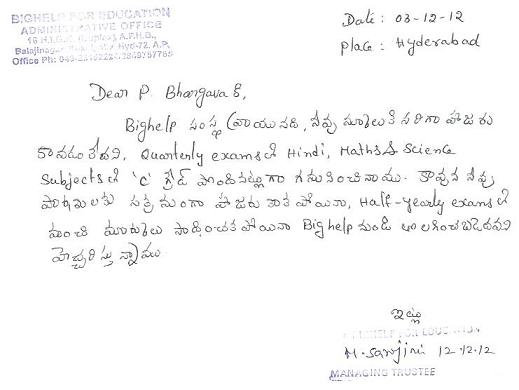 BIGHELP FOR EDUCATION
ADMINISTRATIVE OFFICE
Office Ph:
Date : 03-12-12
Place : Hyderabad
Dear P. Bhargava
Bighelp సంస్థ నీవు స్కూలుకి సరిగా హాజరు
కావడం లేదని, Quarterly examsలో Hindi, Maths & Science
Subjectsలో 'C' గ్రేడ్ పొందినట్లుగా గమనించినాము. కావున నీవు
హాజరు కాక పోయినా, Half-yearly examsలో
మంచి మార్కులు సాధించక పోయినా Bighelp నుండి తొలగించబడెదవని
హెచ్చరిస్తున్నాము
ఇట్లు
BIGHELP FOR EDUCATION
12-12-12
MANAGING TRUSTEE